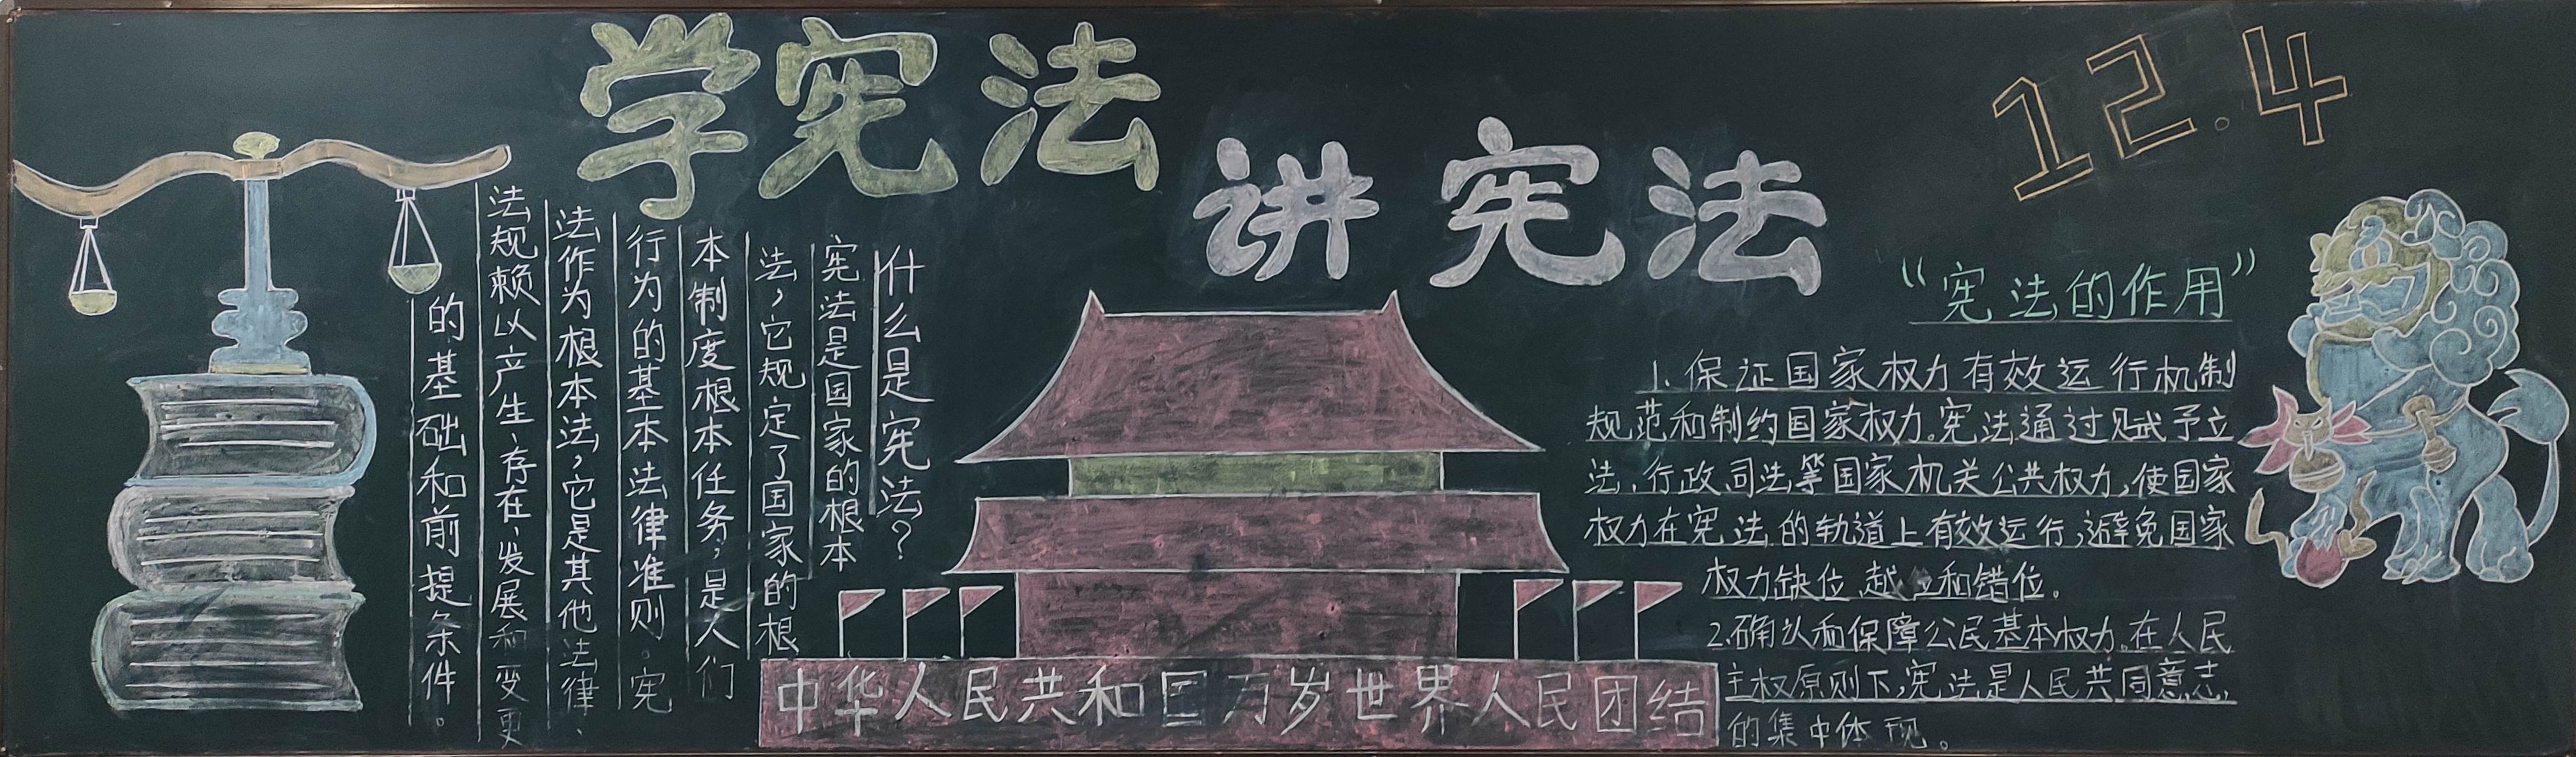 学宪法
讲宪法
12.4
什么是宪法?
宪法是国家的根本
法,它规定了国家的根
本制度根本任务,是人们
行为的基本法律准则。宪
法作为根本法,它是其他法律、
法规赖以产生、存在、发展和变更
的基础和前提条件。
“宪法的作用”
1.保证国家权力有效运行机制
规范和制约国家权力。宪法通过赋予立
法、行政司法等国家机关公共权力,使国家
权力在宪法的轨道上有效运行,避免国家
权力缺位越位和错位。
2.确认和保障公民基本权力。在人民
主权原则下,宪法是人民共同意志
的集中体现。
中华人民共和国万岁世界人民团结